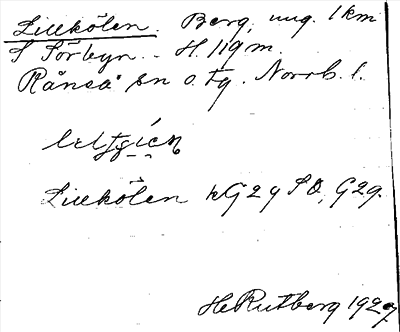 Lillkölen. Berg, ung. 1 km
S Sörbyn. H. 119 m.
Råneå sn o. tg. Norrb. l.
Lillkölen kG29 SO, G29.
H Rutberg 1927